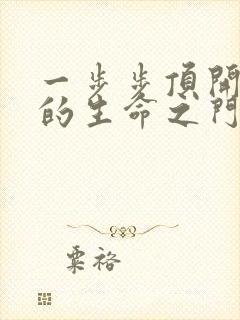 一步步頂開
的生命之門
粟裕